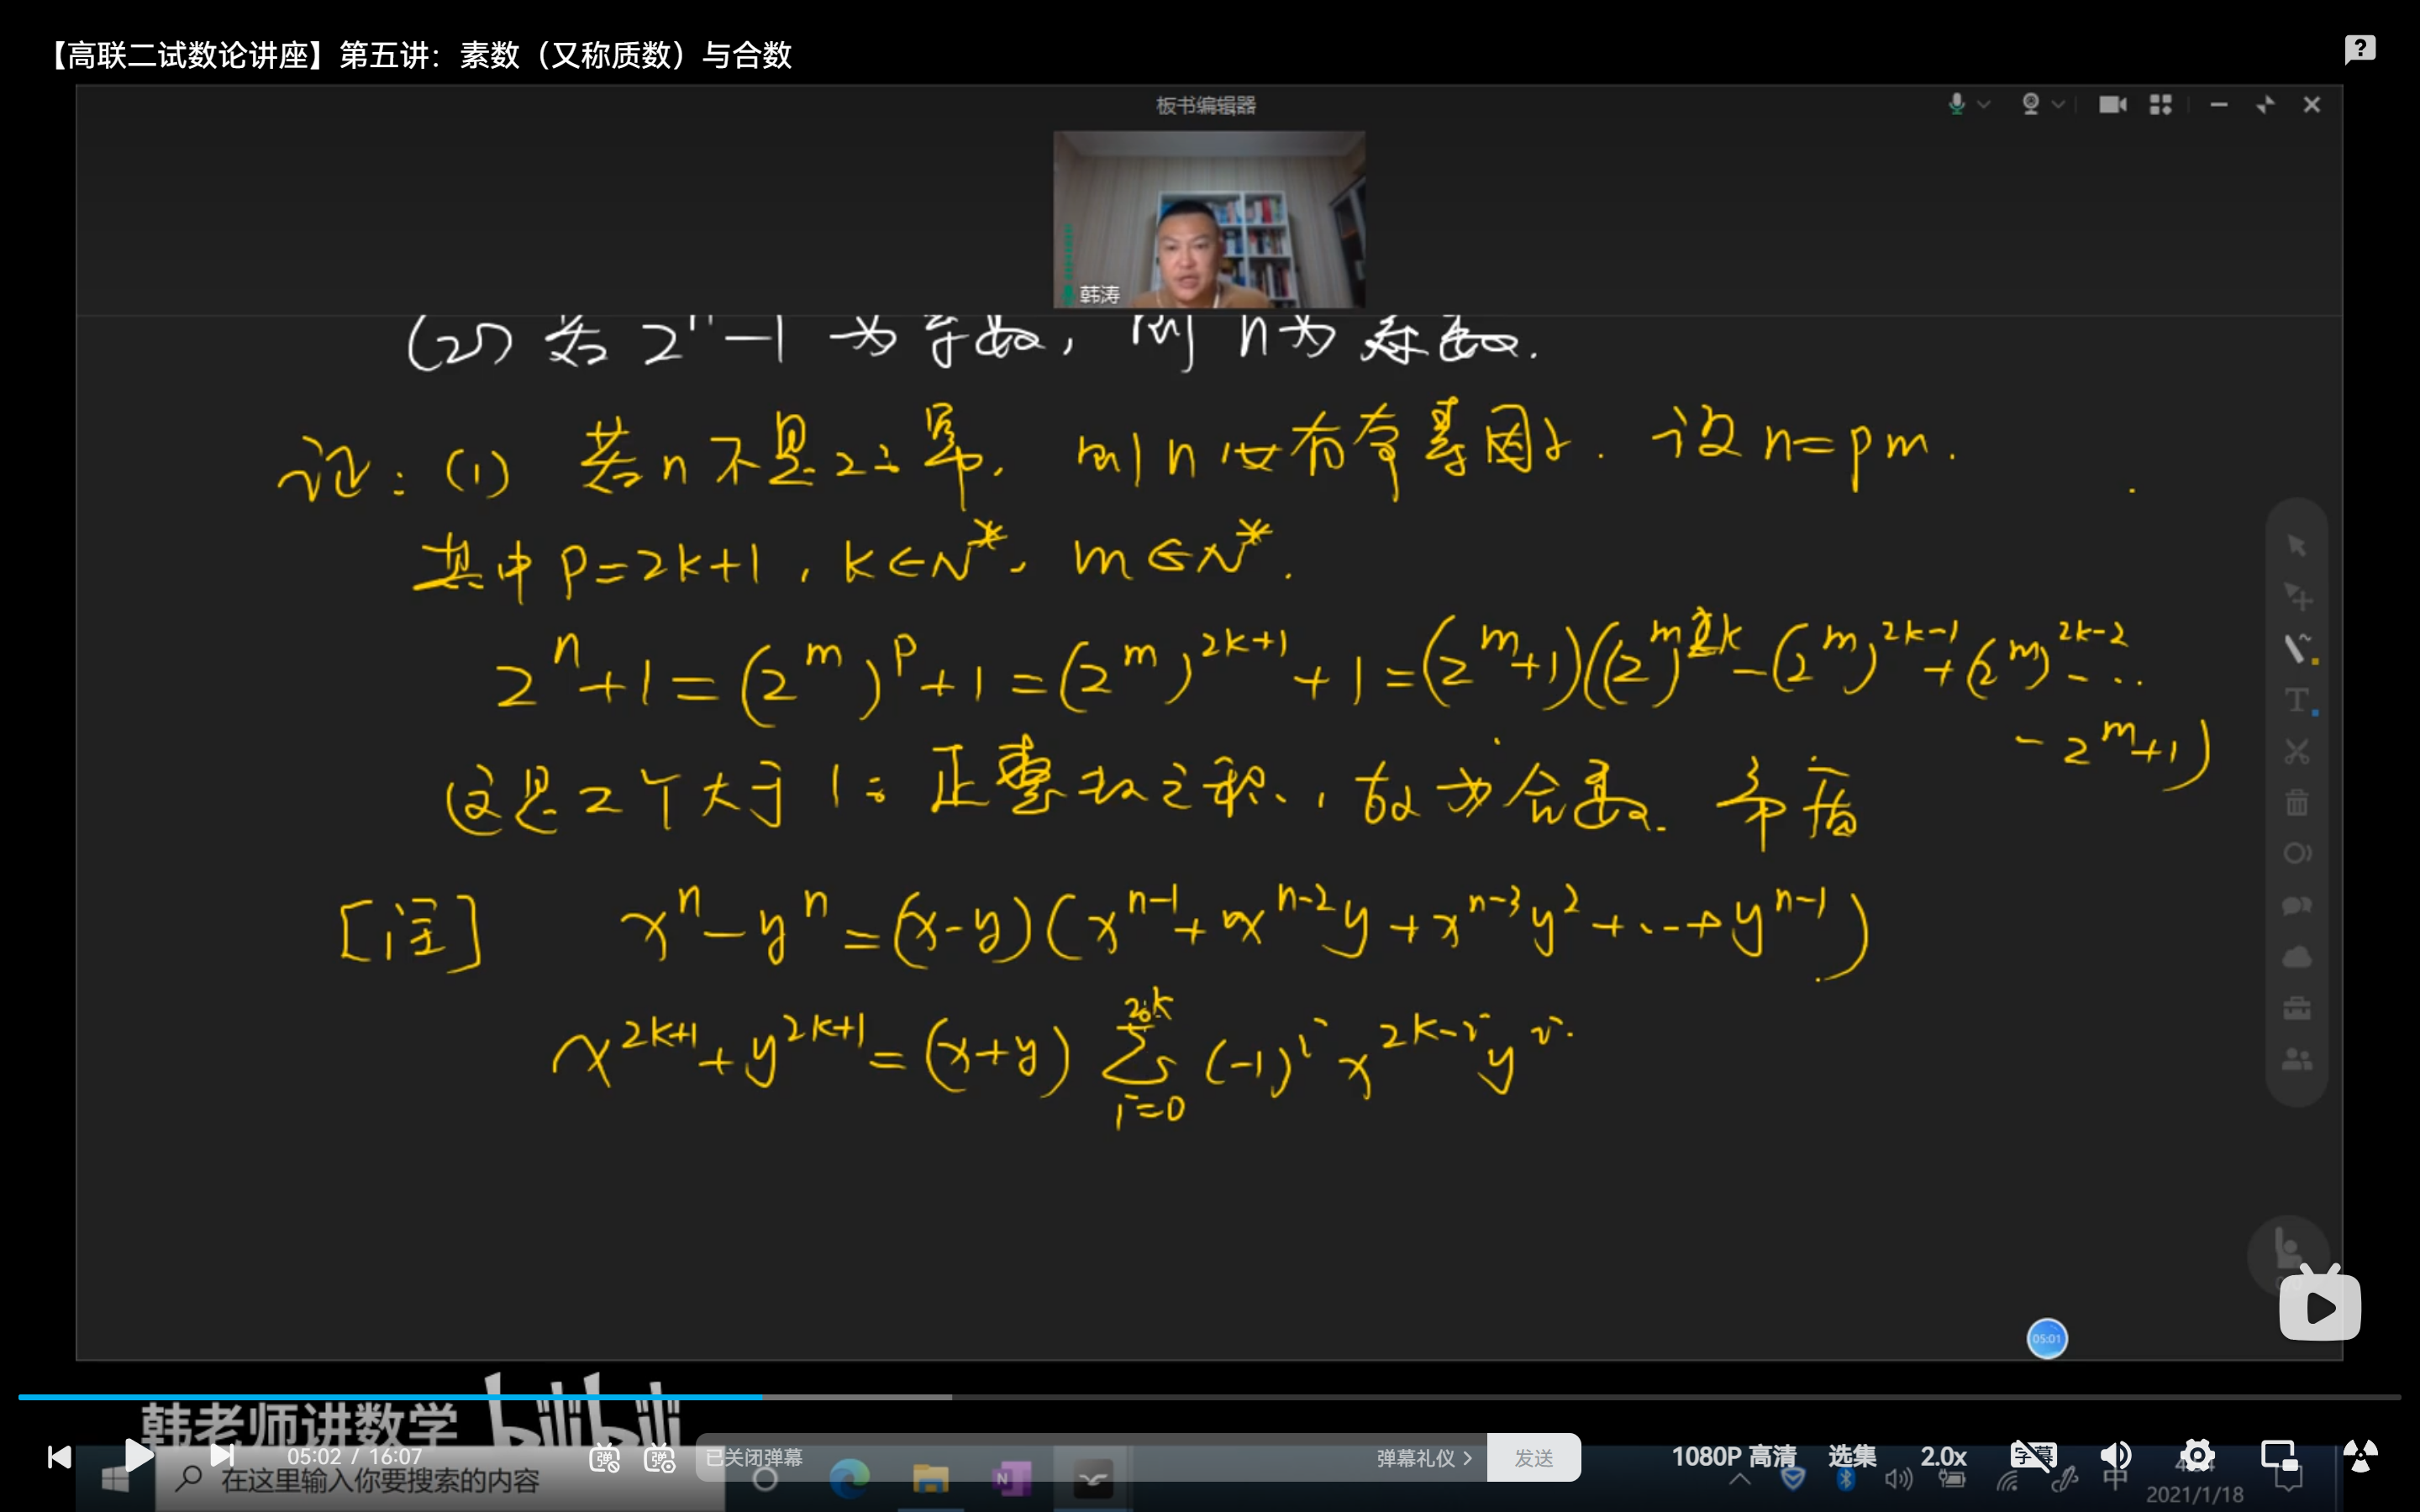 【高联二试数论讲座】第五讲：素数（又称质数）与合数
板书编辑器
韩涛
(2) 若 2ⁿ-1 为素数，则 n为素数.
证：(1) 若n不是2之幂，则n必有奇素因子. 设 n=pm.
其中 p=2k+1，k∈N*，m∈N*.
2^n+1=(2^m)^p+1=(2^m)^{2k+1}+1=(2^m+1)((2^m)^{2k}-(2^m)^{2k-1}+(2^m)^{2k-2}-…
-2^m+1)
这是2个大于1之正整数之积，故为合数. 矛盾
[注] x^n-y^n=(x-y)(x^{n-1}+x^{n-2}y+x^{n-3}y^2+…+y^{n-1})
x^{2k+1}+y^{2k+1}=(x+y)∑_{i=0}^{2k}(-1)^i x^{2k-i}y^i.
05:01
韩老师讲数学 bilibili
05:02 / 16:07
已关闭弹幕
弹幕礼仪
发送
1080P 高清
选集
2.0x
字幕
在这里输入你要搜索的内容
中
2021/1/18